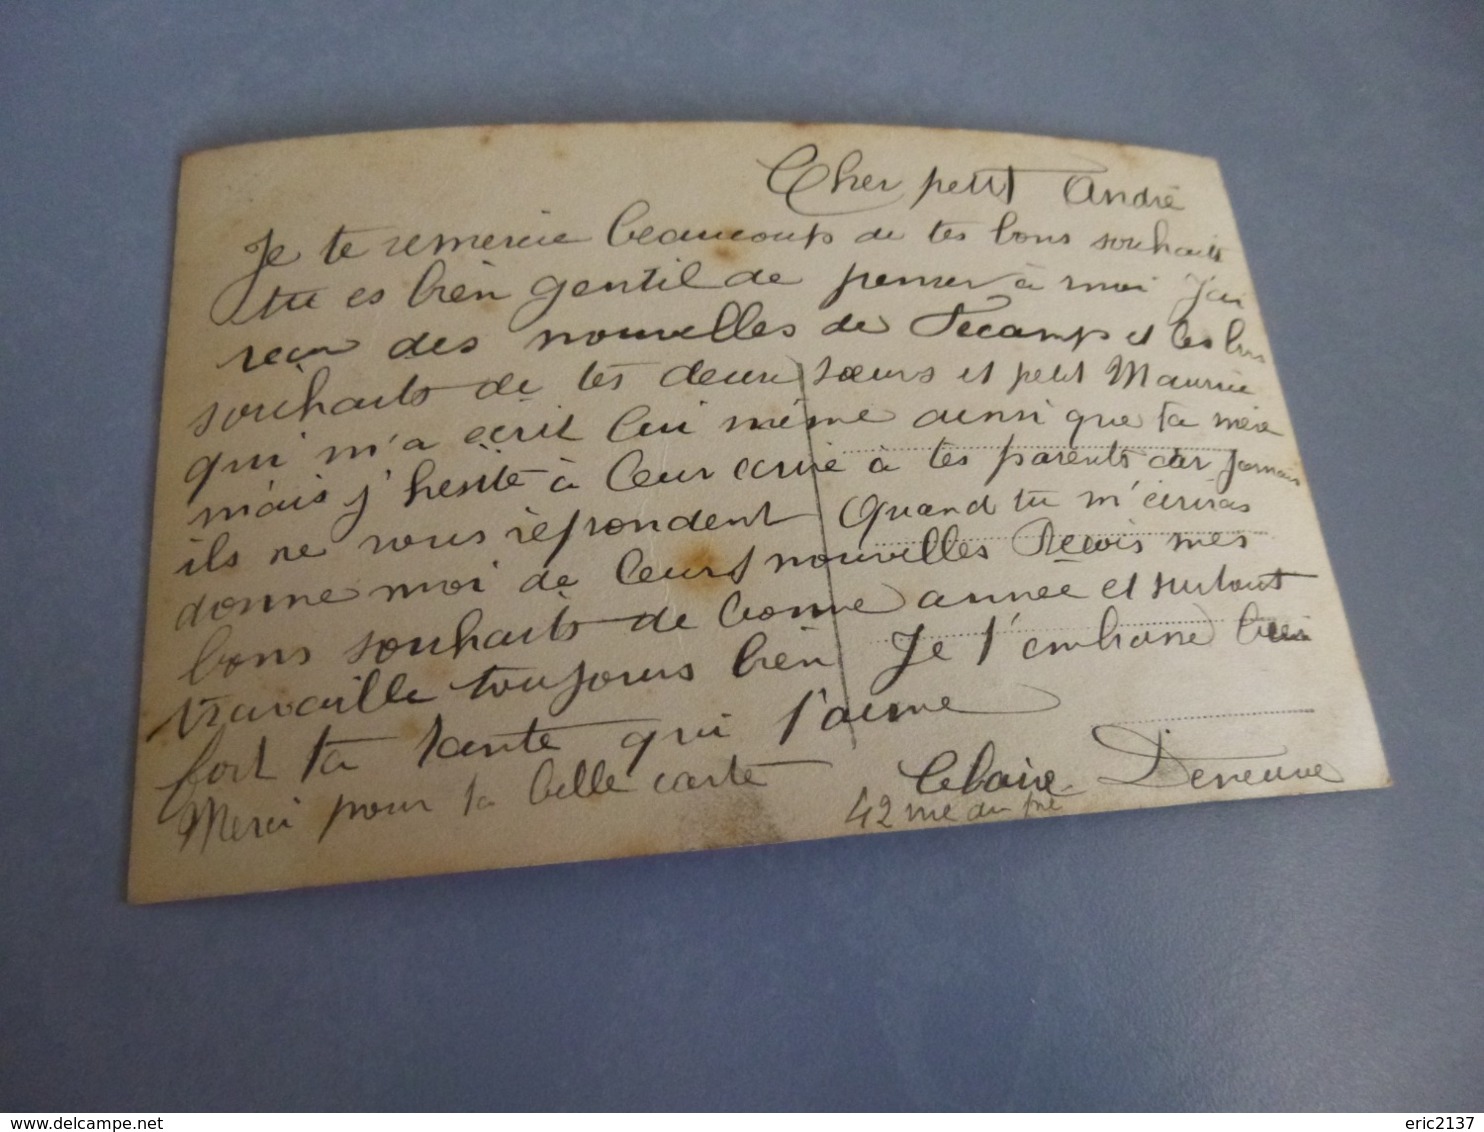 Cher petit André
Je te remercie beaucoup de tes bons souhaits
tu es bien gentil de penser à moi J'ai
reçu des nouvelles de Fecamp et les bons
souhaits de tes deux sœurs et petit Maurice
qui m'a écrit lui même ainsi que ta mère
mais j'hésite à leur à tes parents car jamais
ils ne vous répondent Quand tu m'écriras
donne moi de leurs nouvelles Recois mes
bons souhaits de bonne année et surtout
travaille toujours bien Je t'embrasse bien
fort ta tante qui t'aime
Claire Deneuve
Merci pour ta belle carte
42 rue du pré
delcampe.net
eric2137